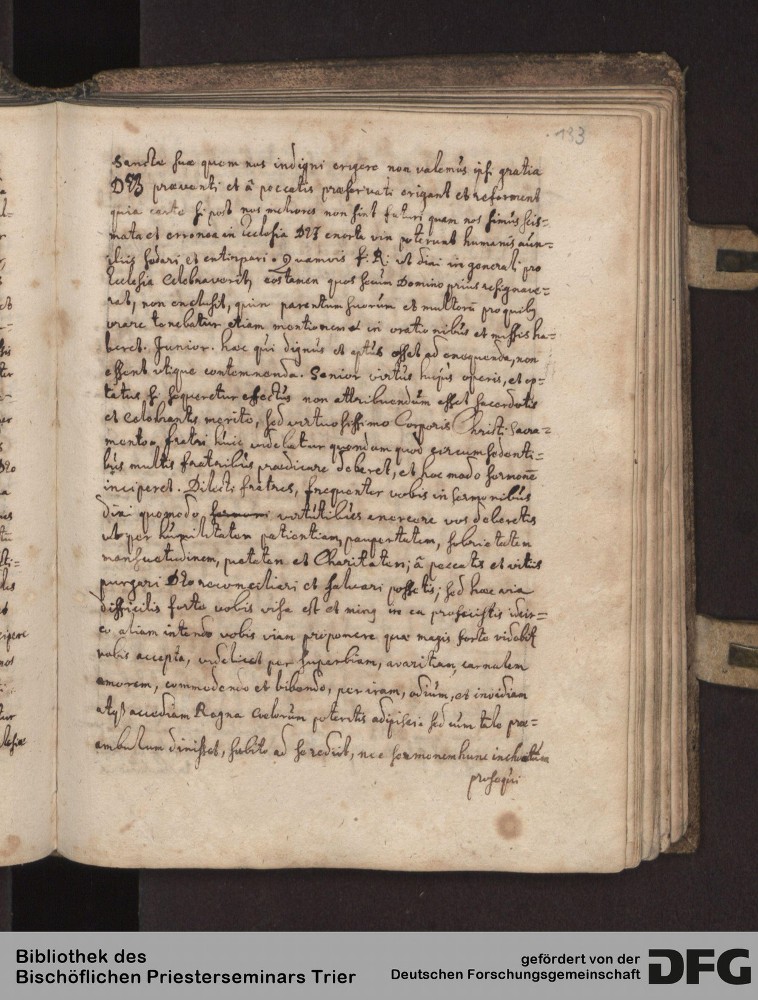 193
Sanctæ suæ quem nos indigni erigere non valemus ipsi gratia
DEI præventi et â peccatis præservati erigant et reforment
quia certe si post nos meliores non sint futuri quam nos simus scis-
mata et erronea in Ecclesia DEI exorta vix poterunt humanis aux-
iliis sedari et extirpari. Quamvis f. R: ut dixi in generali pro
Ecclesia Celebraverit, eos tamen quos secum Domino prius resignave-
rat, non exclusit, quin parentum suorum et multorū pro quib9
orare tenebatur etiam mentionem in orationibus et missis ha-
beret. Junior. hæc qui dignus et aptus esset ad exequenda, non
essent utique contemnenda. Senior virtus hujus operis, et op-
tatus, si sequeretur effectus non attribuendum esset sacerdotis
et Celebrantis merito, sed virtuosissimo Corporis Christi Sacra-
mento. fratri huic videbatur quondam quod circumsedenti-
bus multis fratribus prædicare deberet, et hoc modo sermonē
inciperet. Dilecti fratres, frequenter vobis in sermonibus
dixi quomodo virtutibus exercere vos deberetis
ut per humilitatem patientiam, paupertatem, sobrietatem
mansuetudinem, pietatem et Charitatem; â peccatis et vitiis
purgari DEo reconciliari et salvari possetis; sed hæc via
difficilis forte vobis visa est et minus in ea profecistis idcir-
co aliam intendo vobis viam proponere quæ magis forte videbit
vobis accepta, videlicet per superbiam, avaritiam, carnalem
amorem, commedendo et bibendo, per iram, odium, et invidiam
atq3 accediam Regna Coelorum poteritis adipisci. Sed cum tale præ-
ambulum dixisset, subito ad se rediit, nec sermonem hunc inchoatum
prosequi
Bibliothek des
Bischöflichen Priesterseminars Trier
gefördert von der
Deutschen Forschungsgemeinschaft
DFG